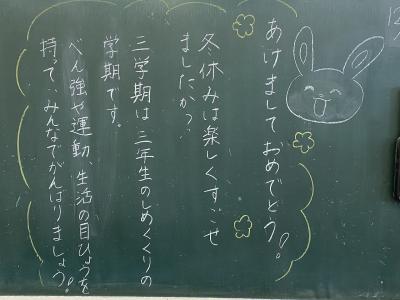 あけましておめでとう!
冬休みは楽しくすごせ
ましたか?
三学期は、三年生のしめくくりの
学期です。
べん強や運動、生活の目ひょうを
持って、みんなでがんばりましょう!